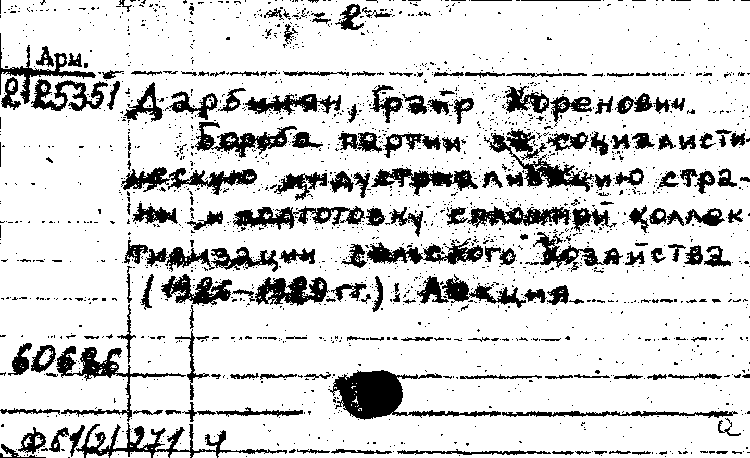 - 2 -
Арм.
2|25351 Дарбинян, Граир Хоренович.
Борьба партии за социалисти-
ческую индустриализацию стра-
ны и подготовку сплошной коллек
тивизации сельского хозяйства
(1926-1929 гг.): Лекция.
60686
Ф 61(2) 271 Ч